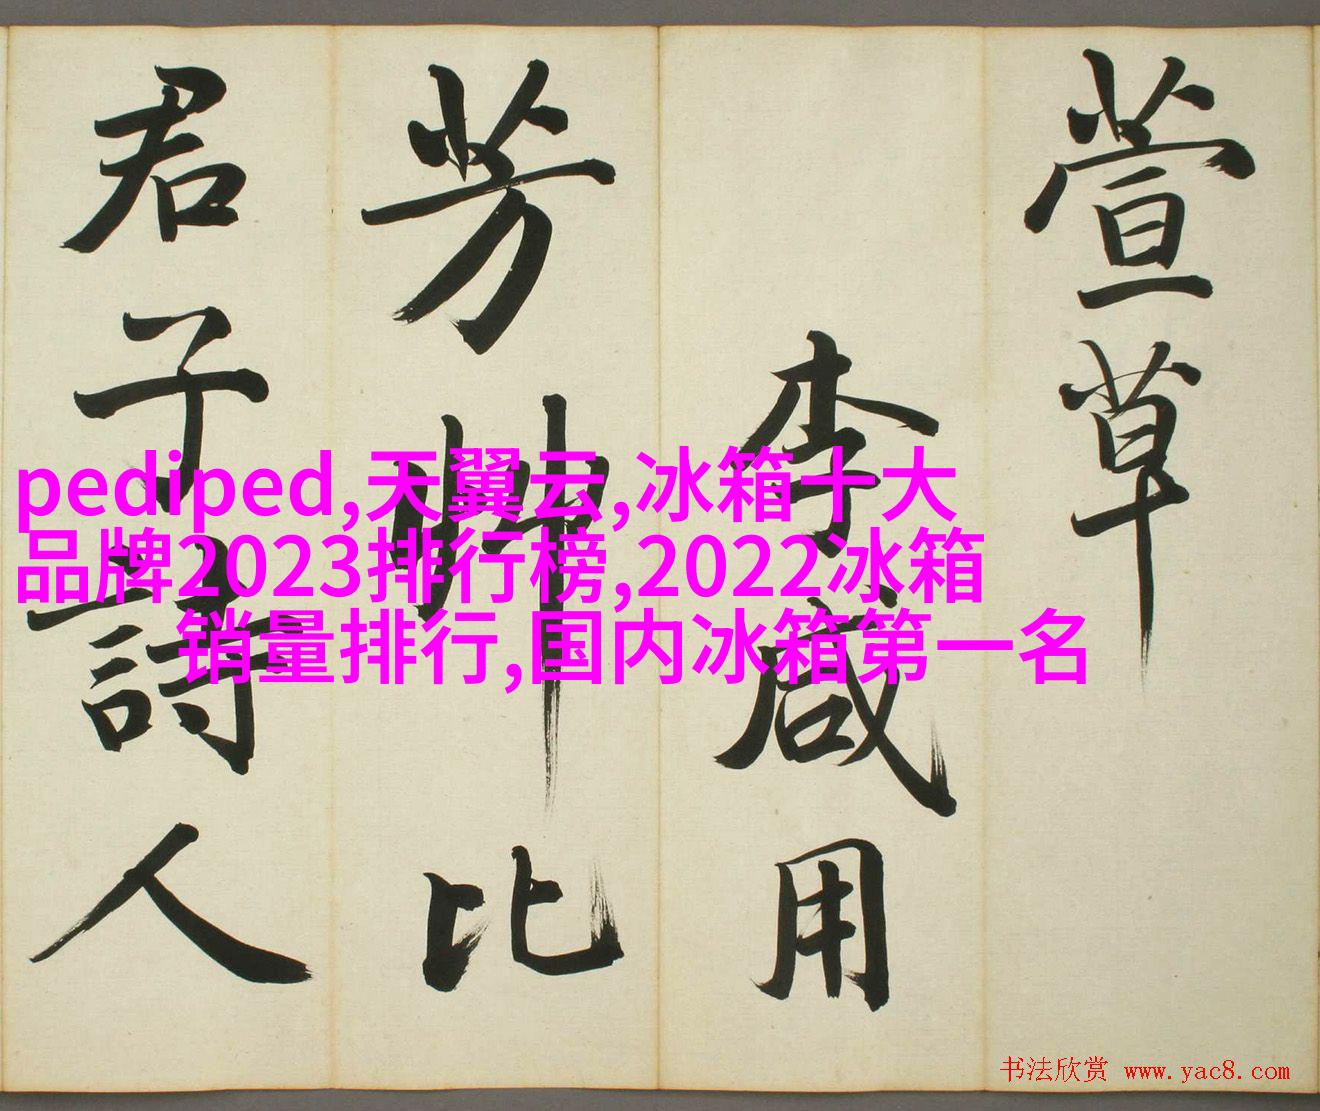 萱草
李咸用
芳艸比
君子詩人
pediped,天翼云,冰箱十大
品牌2023排行榜,2022冰箱
销量排行,国内冰箱第一名
书法欣赏 www.yac8.com